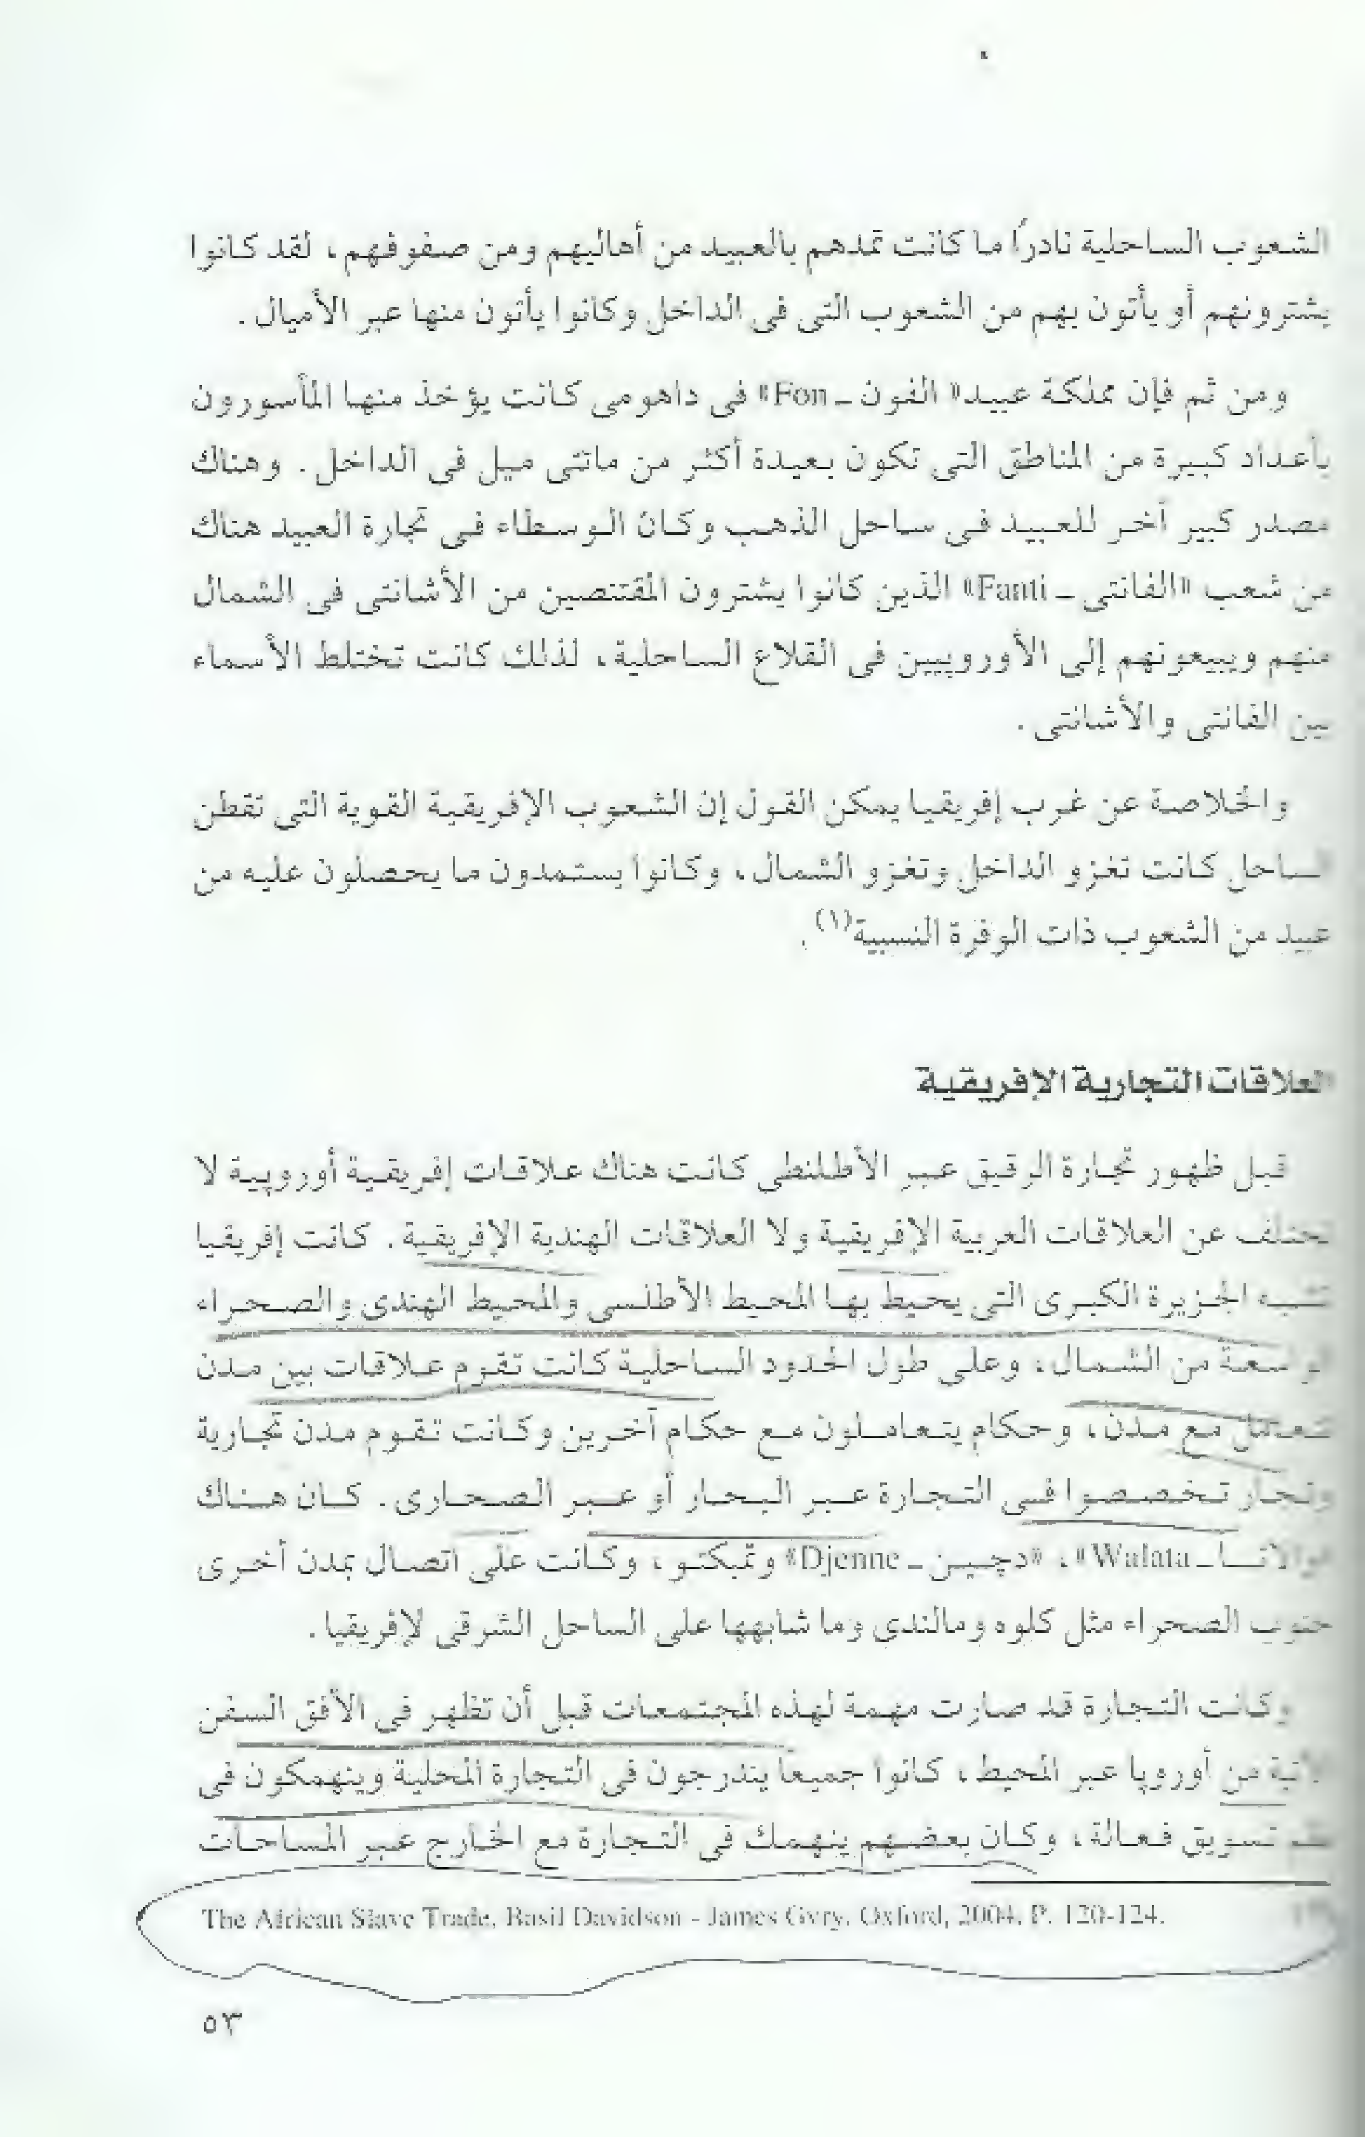 الشعوب الساحلية نادرًا ما كانت تمدهم بالعبيد من أهاليهم ومن صفوفهم، لقد كانوا
يشترونهم أو يأتون بهم من الشعوب التى فى الداخل وكانوا يأتون منها عبر الأميال.
ومن ثم فإن مملكة عبيد «الفون ـ Fon» فى داهومى كانت يؤخذ منها المأسورون
بأعداد كبيرة من المناطق التى تكون بعيدة أكثر من مائتى ميل فى الداخل. وهناك
مصدر كبير آخر للعبيد فى ساحل الذهب وكان الوسطاء فى تجارة العبيد هناك
من شعب «الفانتى ـ Fanti» الذين كانوا يشترون المقتنصين من الأشانتى فى الشمال
منهم ويبيعونهم إلى الأوروبيين فى القلاع الساحلية، لذلك كانت تختلط الأسماء
بين الفانتى والأشانتى.
والخلاصة عن غرب إفريقيا يمكن القول إن الشعوب الإفريقية القوية التى تقطن
الساحل كانت تغزو الداخل وتغزو الشمال، وكانوا يستمدون ما يحصلون عليه من
عبيد من الشعوب ذات الوفرة النسبية(١).
العلاقات التجارية الإفريقية
قبل ظهور تجارة الرقيق عبر الأطلنطى كانت هناك علاقات إفريقية أوروبية لا
تختلف عن العلاقات العربية الإفريقية ولا العلاقات الهندية الإفريقية. كانت إفريقيا
تشبه الجزيرة الكبرى التى يحيط بها المحيط الأطلسى والمحيط الهندى والصحراء
الواسعة من الشمال، وعلى طول الحدود الساحلية كانت تقوم علاقات بين مدن
تتعامل مع مدن، وحكام يتعاملون مع حكام آخرين وكانت تقوم مدن تجارية
وتجار تخصصوا فى التجارة عبر البحار أو عبر الصحارى. كان هناك
«والاتا ـ Walata»، «دچين ـ Djenne» وتمبكتو، وكانت على اتصال بمدن أخرى
جنوب الصحراء مثل كلوه ومالندى وما شابهها على الساحل الشرقى لإفريقيا.
وكانت التجارة قد صارت مهمة لهذه المجتمعات قبل أن تظهر فى الأفق السفن
الآتية من أوروبا عبر المحيط، كانوا جميعا يندرجون فى التجارة المحلية وينهمكون فى
نظم تسويق فعالة، وكان بعضهم ينهمك فى التجارة مع الخارج عبر المساحات
The African Slave Trade, Basil Davidson - James Gvry, Oxford, 2004, P. 120-124.
٥٣